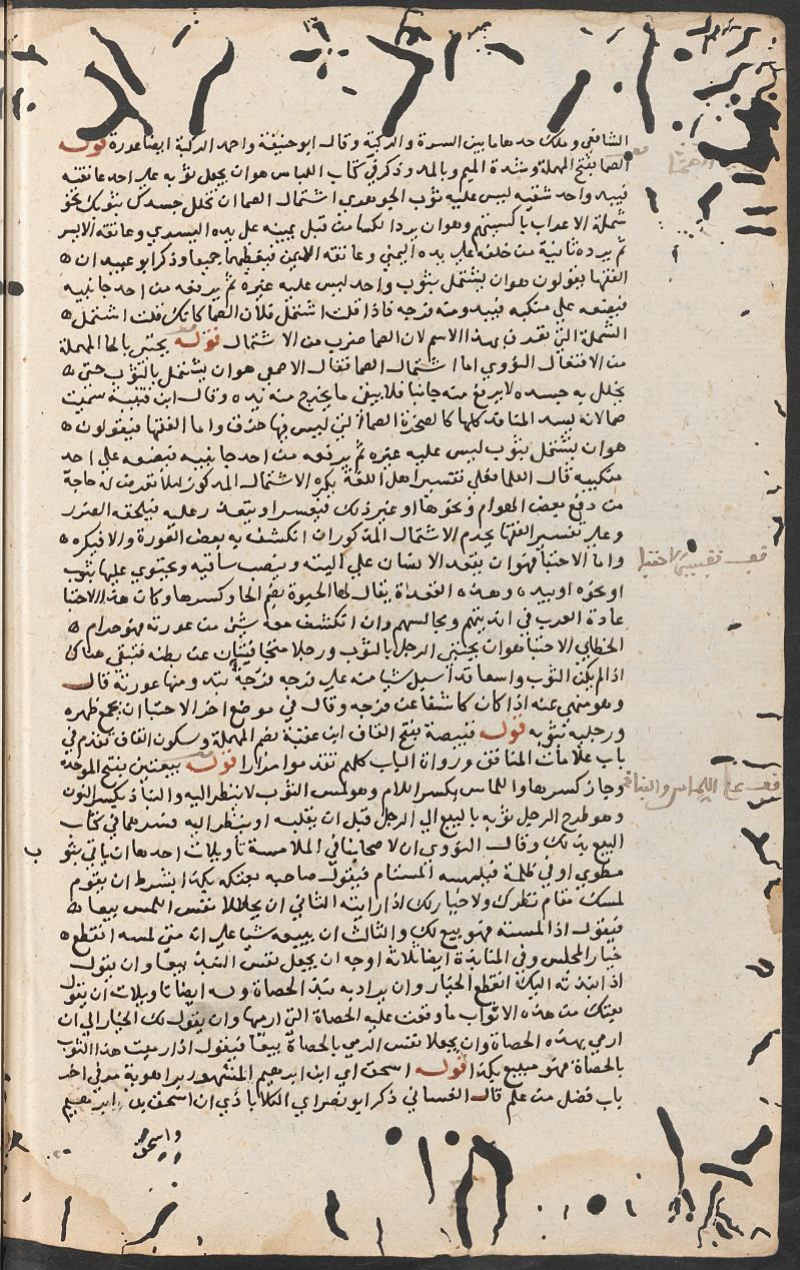 الشافعي وملك حدهاما بين السرة والركبة وقال ابو حنيفة واحمد الركبة ايضا عورة قوله
الصما بفتح المهملة وشدة الميم وبالمد وذكر في كتاب اللباس هو ان يجعل ثوبه على احد عاتقيه
فيبدو احد شقيه ليس عليه ثوب الجوهري اشتمال الصما ان تجلل جسدك بثوبك نحو
شملة الاعراب باكسيتهم وهو ان يرد الكسا من قبل يمينه على يده اليسري وعاتقه الايسر
ثم يرده ثانية من خلفه على يده اليمني وعاتقه الايمن فيغطيهما جميعا وذكر ابو عبيد ان
الفقها يقولون هو ان يشتمل بثوب واحد ليس عليه غيره ثم يرفعه من احد جانبيه
فيضعه على منكبه فيبدو منه فرجه فاذا قلت اشتمل فلان الصما كانك قلت اشتمل
الشملة التي تعرف بهذا الاسم لان الصما ضرب من الاشتمال قوله يحتبي بالحا المهملة
من الافتعال النووي اما اشتمال الصما فقال الاصمعي هو ان يشتمل بالثوب حتى
يجلل به جسده لا يرفع منه جانبا فلا يبقى ما يخرج منه يده وقال ابن قتيبة سميت
صما لانه يسد المنافذ كلها كالصخرة الصما التي ليس فيها خرق واما الفقها فيقولون
هو ان يشتمل بثوب ليس عليه غيره ثم يرفعه من احد جانبيه فيضعه على احد
منكبيه قال العلما فعلى تفسير اهل اللغة يكره الاشتمال المذكور ليلا تعرض له حاجة
من دفع بعض الهوام ونحوها او غير ذلك فيعسر او يتعذر عليه فيلحقه الضرر
وعلى تفسير الفقها يحرم الاشتمال المذكور ان انكشف به بعض العورة والا فيكره
واما الاحتبا فهو ان يقعد الانسان على اليته وينصب ساقيه ويحتوي عليها بثوب
او نحوه او بيده وهذه القعدة يقال لها الحبوة بضم الحا وكسرها وكان هذا الاحتبا
عادة العرب في انديتهم ومجالسهم وان انكشف معه شي من عورته فهو حرام
الخطابي الاحتبا هو ان يحتبي الرجل بالثوب ورجلا متجافيتان عن بطنه فتبقى هناك
اذا لم يكن الثوب واسعا قد اسبل شيا منه على فرجه فرجة تبد ومنها عورته قال
وهو منهي عنه اذا كان كاشفا عن فرجه وقال في موضع اخر الاحتبا ان يجمع ظهره
ورجليه بثوبه قوله قبيصة بفتح القاف ابن عقبة بضم المهملة وسكون القاف تقدم في
باب علامات المنافق ورواة الباب كلهم تقدموا مرارا قوله بيعتين بفتح الموحدة
وجاز كسرها واللماس بكسر اللام وهو لمس الثوب لا ينظر اليه والنباذ بكسر النون
وهو طرح الرجل ثوبه بالبيع الي الرجل قبل ان يقلبه او ينظر اليه فسرهما في كتاب
البيع بذلك وقال النووي ان لاصحابنا في الملامسة تاويلات احدها ان ياتي بثو
ب
مطوي او في ظلمة فيلمسه المستام فيقول صاحبه بعتكه بكذا بشرط ان يقوم
لمسك مقام نظرك ولا خيار لك اذا رايته الثاني ان يجعلا نفس اللمس بيعا
فيقول اذا لمسته فهو بيع لك والثالث ان يبيعه شيا على انه متى لمسه انقطع
خيار المجلس وفي المنابذة ايضا ثلاثة اوجه ان يجعل نفس النبذ بيعا وان يقول
اذا نبذته اليك انقطع الخيار وان يراد به نبذ الحصاة وله ايضا تاويلات ان يقول
بعتك من هذه الاثواب ما وقعت عليه الحصاة التي ارميها وان يقول لك الخيار الى ان
ارمي بهذه الحصاة وان يجعلا نفس الرمي بالحصاة بيعا فيقول اذا رميت هذا الثوب
بالحصاة فهو مبيع بكذا قوله اسحق اي ابن ابرهيم المشهور براهوية مر في اخر
باب فضل من علم قال الغساني ذكر ابو نصر اي الكلاباذي ان اسحق بن ابرهيم
واسحق
قف تفسير الاحتبا
قف على اللماس والنباذ